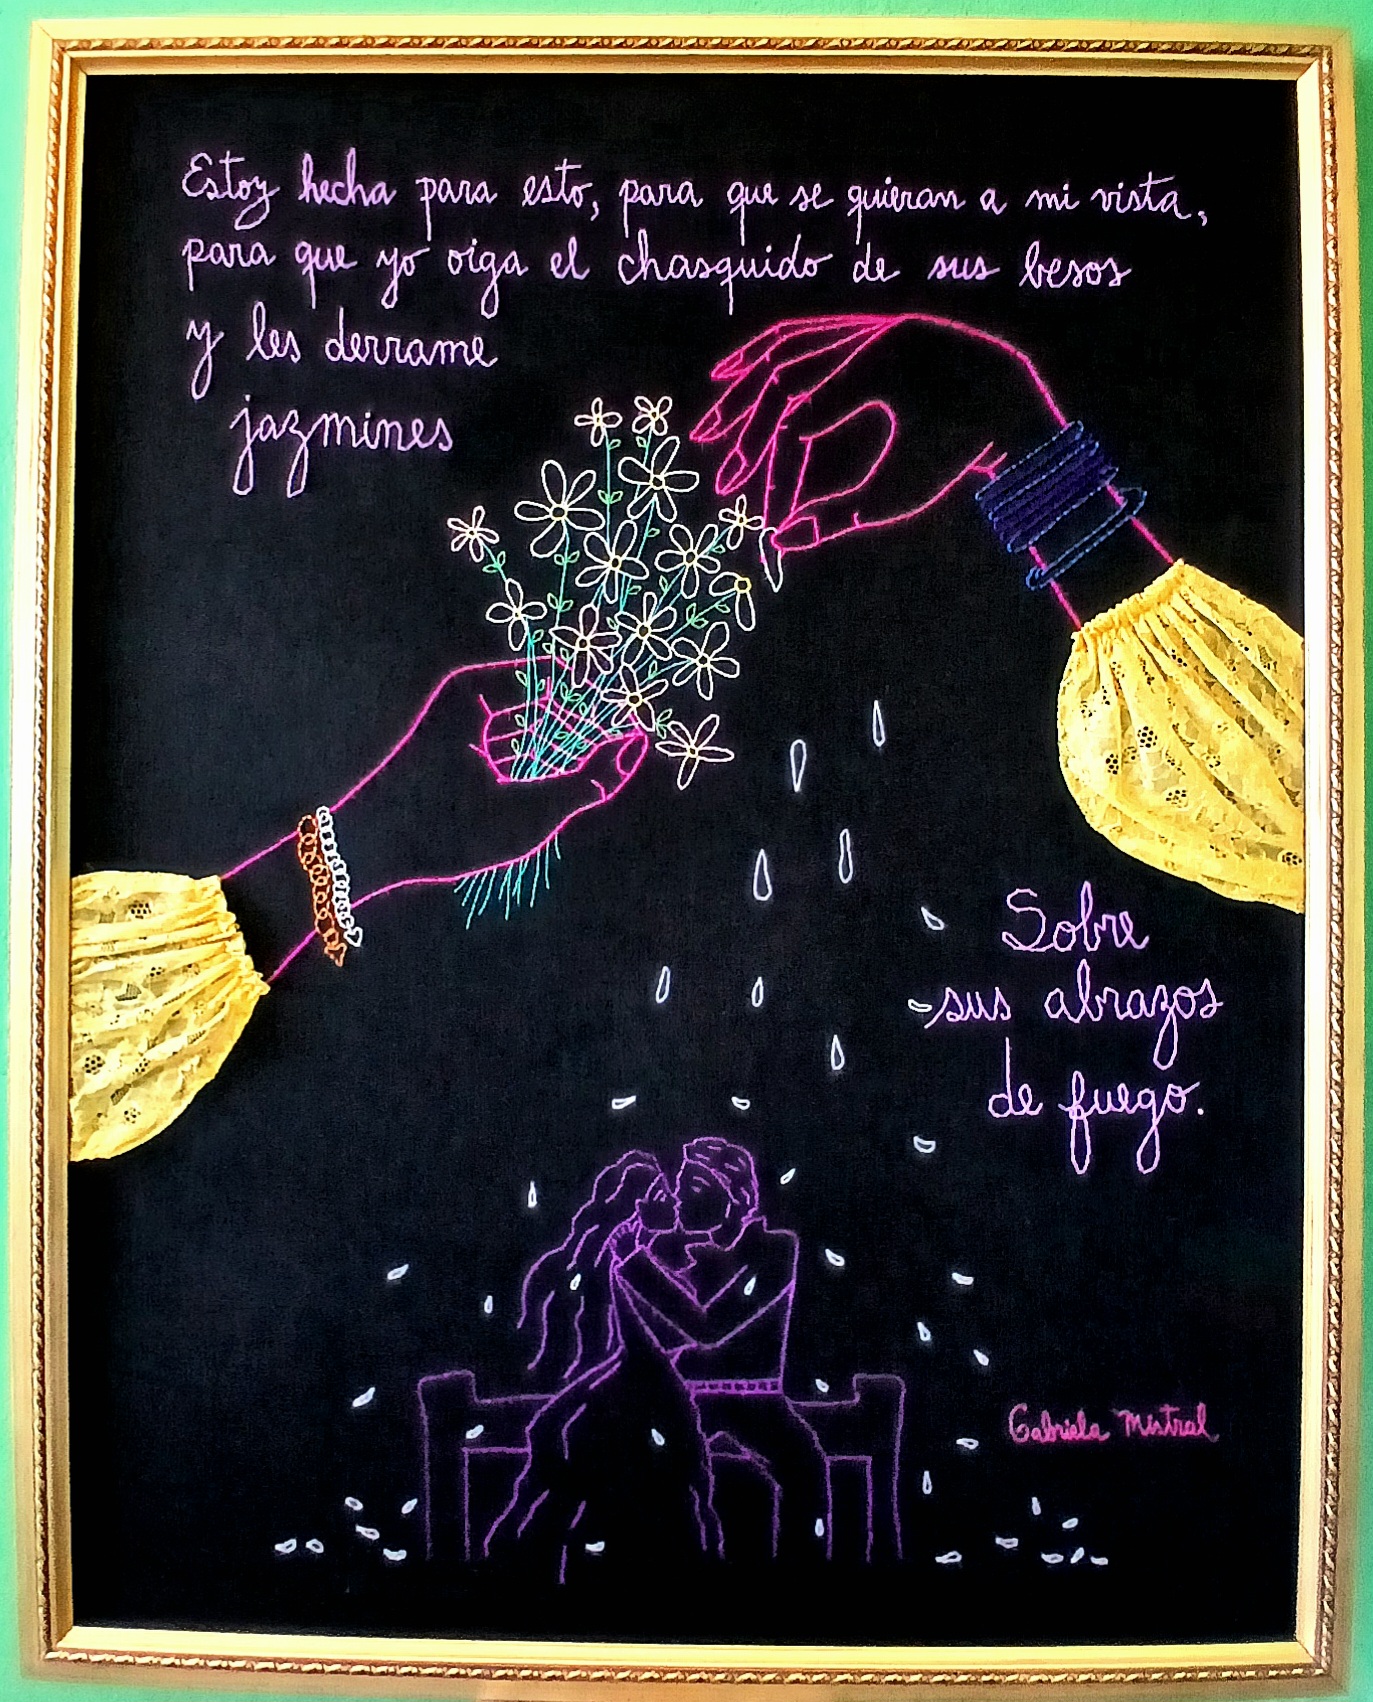 Estoy hecha para esto, para que se quieran a mi vista,
para que yo oiga el chasquido de sus besos
y les derrame
jazmines
Sobre
sus abrazos
de fuego.
Gabriela Mistral